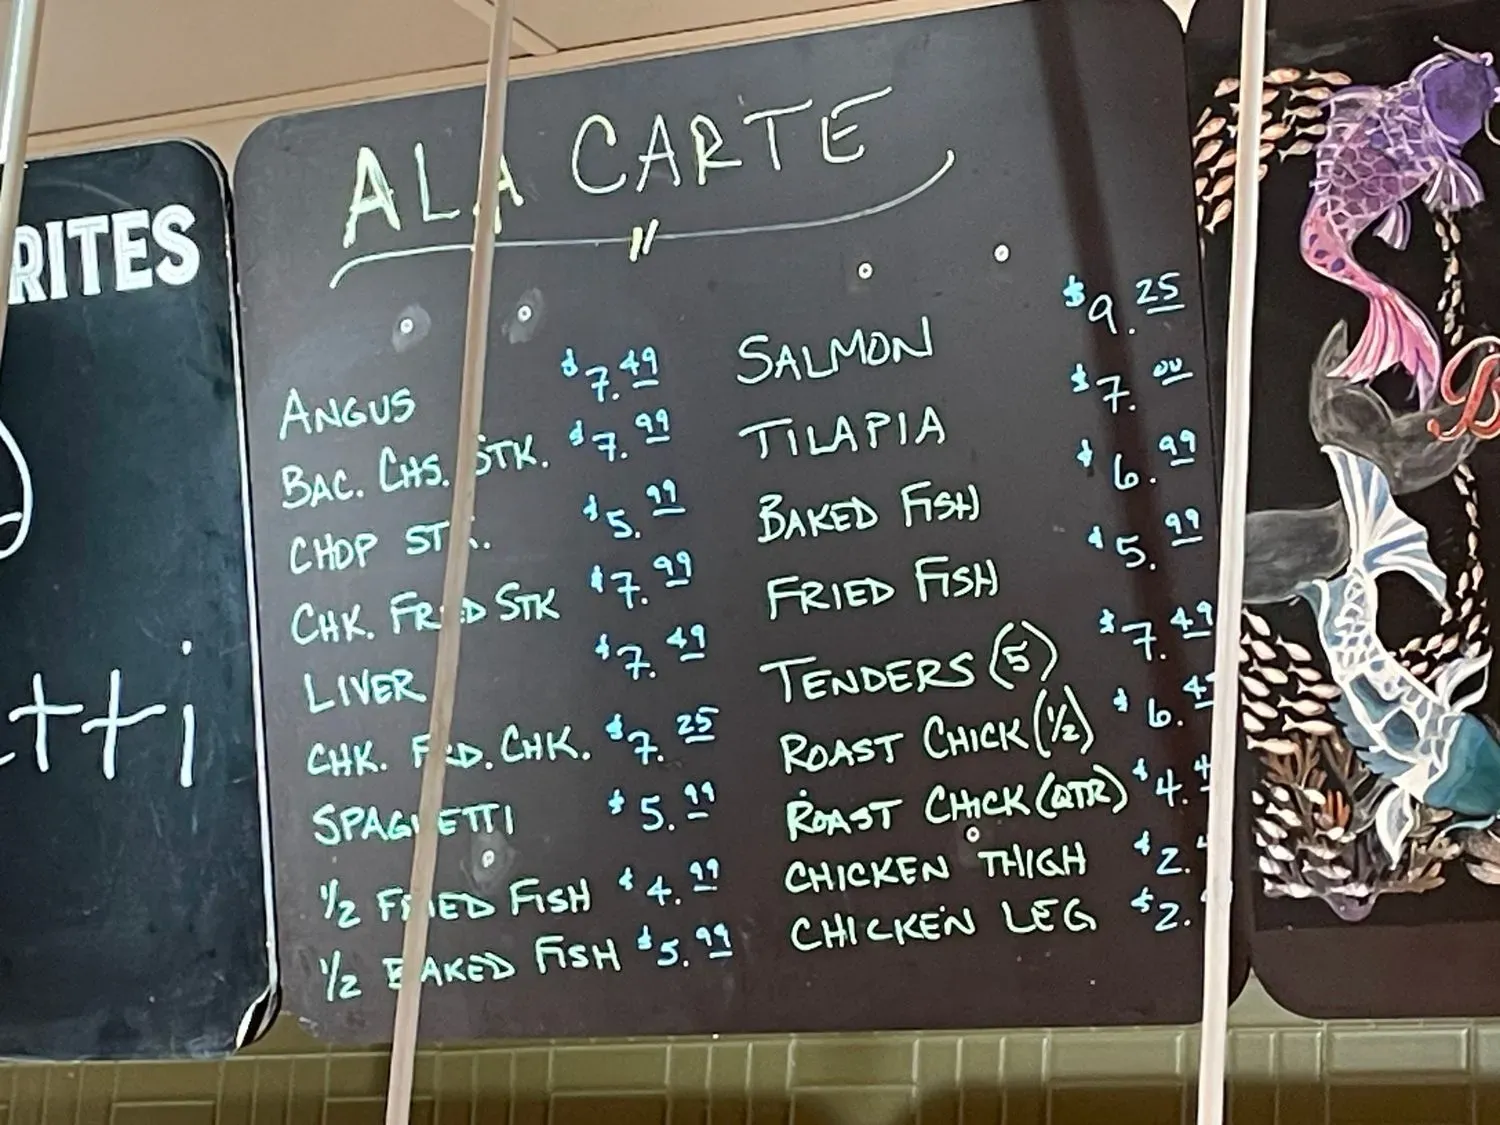 RITES
tti
ALA CARTE
ANGUS $7.49
BAC. CHS. STK. $7.99
CHOP STK. $5.99
CHK. FRIED STK $7.99
LIVER $7.49
CHK. FRD. CHK. $7.25
SPAGHETTI $5.99
1/2 FRIED FISH $4.99
1/2 BAKED FISH $5.99
SALMON $9.25
TILAPIA $7.00
BAKED FISH $6.99
FRIED FISH $5.99
TENDERS (5) $7.49
ROAST CHICK (1/2) $6.4
ROAST CHICK (QTR) $4.4
CHICKEN THIGH $2.
CHICKEN LEG $2.
B